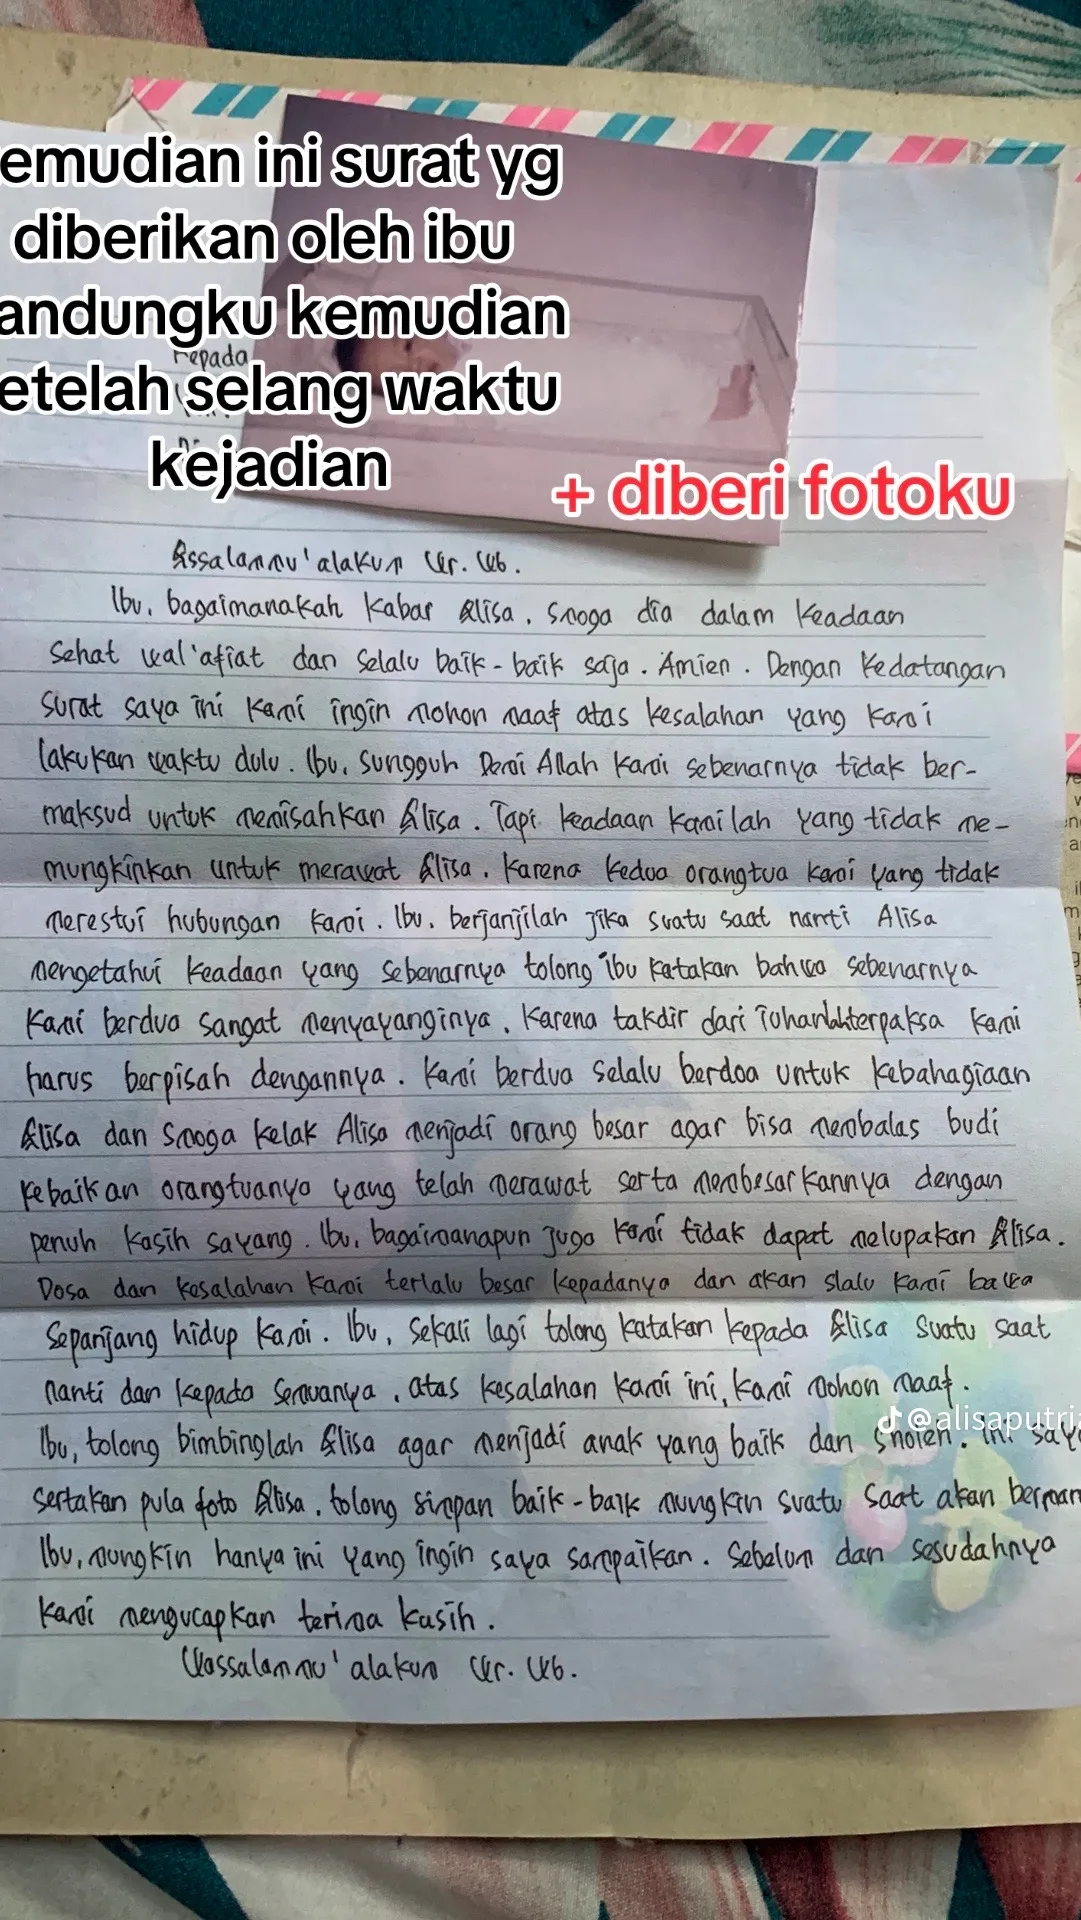 emudian ini surat yg
diberikan oleh ibu
andungku kemudian
etelah selang waktu
kejadian
+ diberi fotoku
Kepada
Assalammu'alakum Wr. Wb.
Ibu, bagaimanakah kabar Alisa, smoga dia dalam keadaan
sehat wal'afiat dan selalu baik-baik saja. Amien. Dengan kedatangan
surat saya ini kami ingin mohon maaf atas kesalahan yang kami
lakukan waktu dulu. Ibu, sungguh Demi Allah kami sebenarnya tidak ber-
maksud untuk memisahkan Alisa. Tapi keadaan kamilah yang tidak me-
mungkinkan untuk merawat Alisa. Karena kedua orangtua kami yang tidak
merestui hubungan kami. Ibu, berjanjilah jika suatu saat nanti Alisa
mengetahui keadaan yang sebenarnya tolong ibu katakan bahwa sebenarnya
kami berdua sangat menyayanginya. Karena takdir dari Tuhanlah terpaksa kami
harus berpisah dengannya. Kami berdua selalu berdoa untuk kebahagiaan
Alisa dan smoga kelak Alisa menjadi orang besar agar bisa membalas budi
kebaikan orangtuanya yang telah merawat serta membesarkannya dengan
penuh kasih sayang. Ibu, bagaimanapun juga kami tidak dapat melupakan Alisa.
Dosa dan kesalahan kami terlalu besar kepadanya dan akan slalu kami bawa
sepanjang hidup kami. Ibu, sekali lagi tolong katakan kepada Alisa suatu saat
nanti dan kepada semuanya, atas kesalahan kami ini, kami mohon maaf.
Ibu, tolong bimbinglah Alisa agar menjadi anak yang baik dan sholeh. Ini say
sertakan pula foto Alisa, tolong simpan baik-baik mungkin suatu saat akan berman
Ibu, mungkin hanya ini yang ingin saya sampaikan. Sebelum dan sesudahnya
kami mengucapkan terima kasih.
Wassalammu'alakum Wr. Wb.
@alisaputria